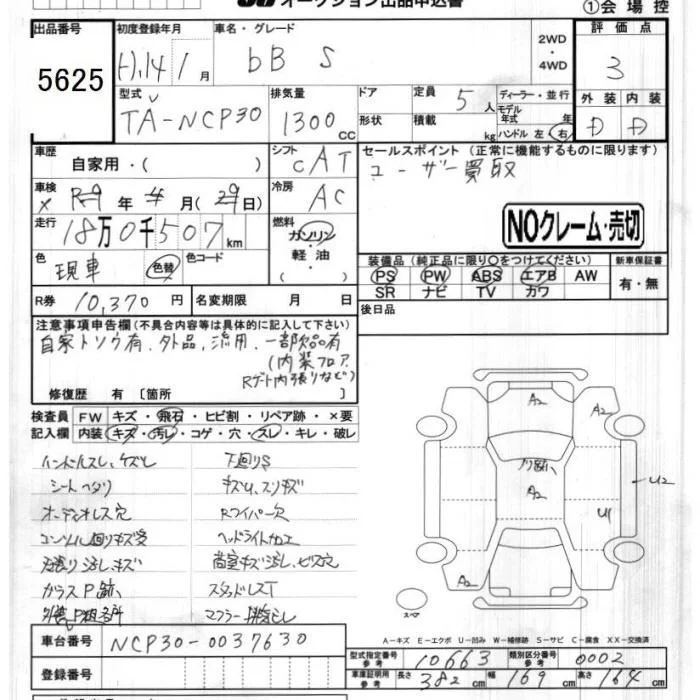 オークション出品申込書
①会場控
出品番号 初度登録年月 車名・グレード 評価点
5625 H.14年 1月 bB S 2WD ・ 4WD 3
型式 排気量 ドア 定員 ディーラー・並行 外装 内装
TA-NCP30 1300cc 形状 5人 積載 kg モデル年式 年 ハンドル 左 右 D D
車歴 自家用・( ) シフト CAT セールスポイント (正常に機能するものに限ります)
ユーザー買取
車検 × R-9年 4月(29日) 冷房 AC
走行 18万0千507km 燃料 ガソリン・軽油・( )
NOクレーム・売切
色 現車 色替 色コード
装備品 (純正品に限り○をつけてください) 新車保証書
PS PW ABS エアB AW 有・無
SR ナビ TV カワ
R券 10,370円 名変期限 月 日 後日品
注意事項申告欄(不具合内容等は具体的に記入して下さい)
自家トソウ有、外品、流用、一部欠品有
(内装フロア、
Rゲート内張りなど)
修復歴 有 〔箇所 〕
検査員 FW キズ・飛石・ヒビ割・リペア跡・×要
記入欄 内装 キズ・汚レ・コゲ・穴・スレ・キレ・破レ
ハンドルスレ、ケズレ 下廻りS
シートヘタリ キズU、スリキズ
オーディオレス穴 Rワイパー欠
コンソル廻りキズ受 ヘッドライト加工
内張り汚レ、キズ 荷室キズ汚レ、ビス穴
ガラスP跡 スタッドレスT
外装P粗多所 マフラー排
A2
A2
A2
U2
U1
A2
スペア
A-キズ E-エクボ U-凹み W-補修跡 S-サビ C-腐食 XX-交換済
車台番号 NCP30-0037630
型式指定番号 参考 10663 類別区分番号 参考 0002
登録番号 車庫証明用 参考 長さ 382cm 幅 169cm 高さ 164cm